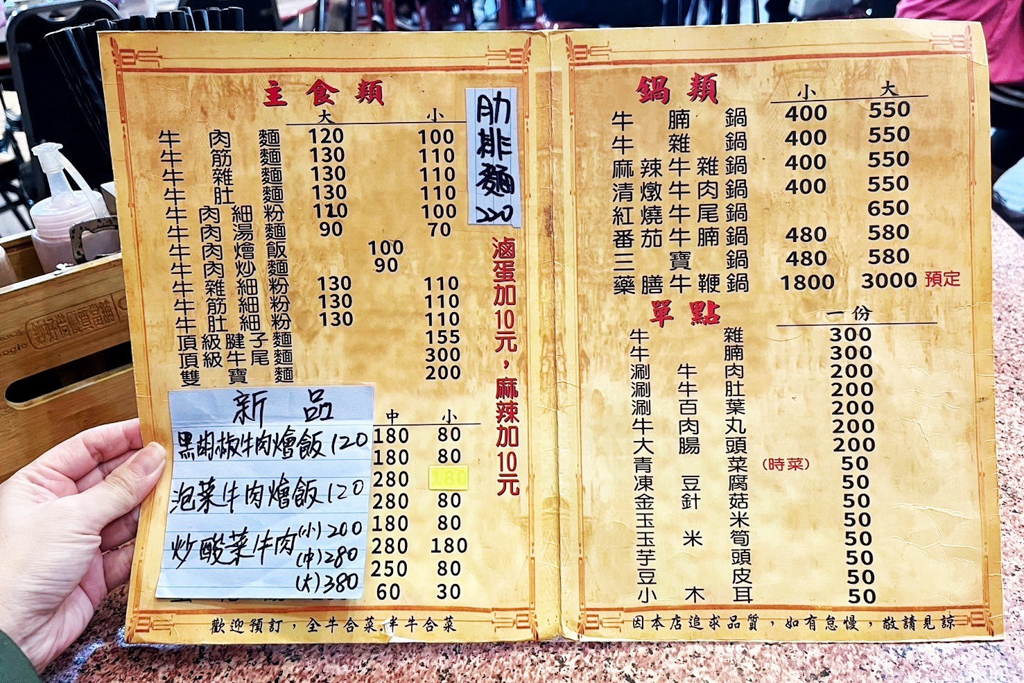 主食類
大 小
牛肉麵 120 100
牛筋麵 130 110
牛雜麵 130 110
牛肚麵 130 110
牛肉細粉 120 100
牛肉湯麵 90 70
牛肉燴飯 100
牛肉炒麵 90
牛雜細粉 130 110
牛筋細粉 130 110
牛肚細粉 130 110
頂級腱子麵 155
頂級牛尾麵 300
雙寶麵 200
肋排麵
220
滷蛋加10元，麻辣加10元
新品
黑胡椒牛肉燴飯 120
泡菜牛肉燴飯 120
炒酸菜牛肉(小)200
(中)280
(大)380
中 小
180 80
180 80
280 180
280 80
180 80
280 180
250 80
60 30
歡迎預訂，全牛合菜,半牛合菜
鍋類
小 大
牛腩鍋 400 550
牛雜鍋 400 550
麻辣牛雜鍋 400 550
清燉牛肉鍋 400 550
紅燒牛尾鍋 650
番茄牛腩鍋 480 580
三寶鍋 480 580
藥膳牛鞭鍋 1800 3000 預定
單點
一份
牛雜 300
牛腩 300
涮牛肉 200
涮牛肚 200
涮百葉 200
牛肉丸 200
大腸頭 200
青菜(時菜) 50
凍豆腐 50
金針菇 50
玉米 50
玉米筍 50
芋頭 50
豆皮 50
小木耳 50
因本店追求品質，如有怠慢，敬請見諒